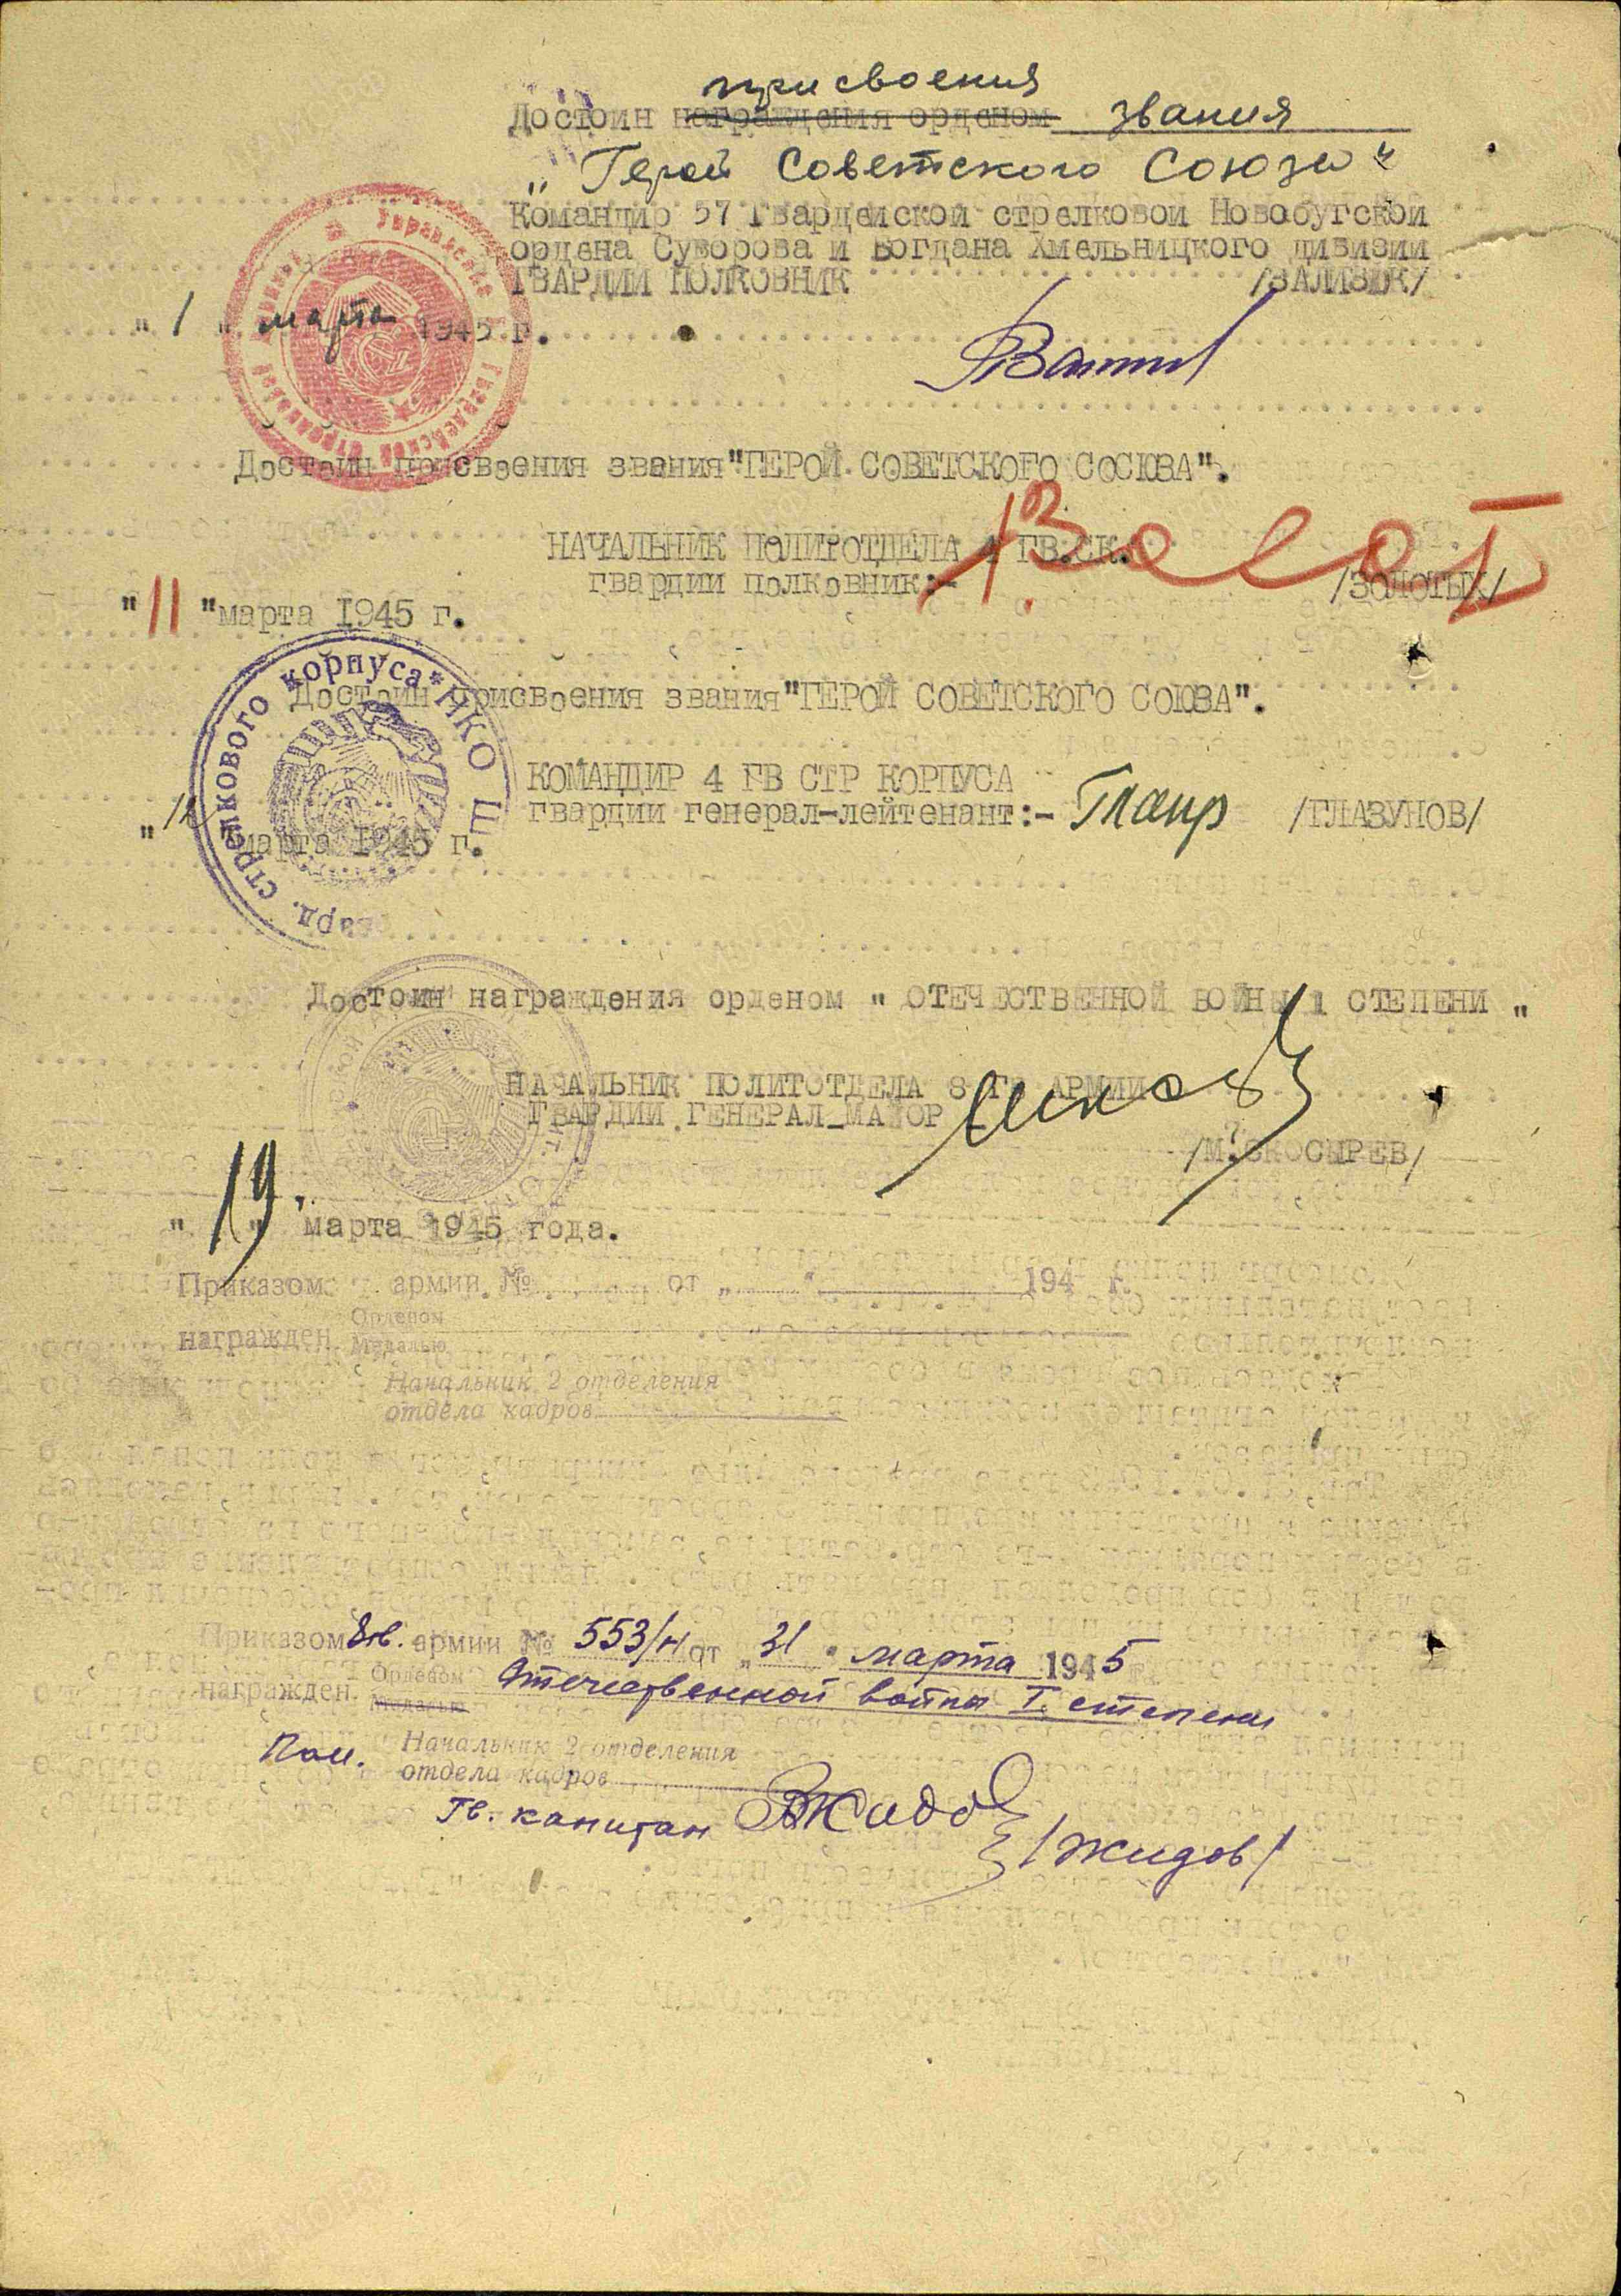 присвоения
Достоин награждения орденом звания
„Герой Советского Союза“
Командир 57 Гвардейской стрелковой Новобугской
ордена Суворова и Богдана Хмельницкого дивизии
ГВАРДИИ ПОЛКОВНИК /ЗАЛИЗЮК/
"1" марта 1945 г.
Достоин присвоения звания "ГЕРОЙ СОВЕТСКОГО СОСЮЗА".
НАЧАЛЬНИК ПОЛИРОТДЕЛА 4 ГВ.СК.
гвардии полковник:- /ЗОЛОТЫХ/
"11" марта 1945 г.
стрелкового корпуса * НКО
Достоин присвоения звания "ГЕРОЙ СОВЕТСКОГО СОЮЗА".
КОМАНДИР 4 ГВ СТР КОРПУСА
гвардии генерал-лейтенант:- /ГЛАЗУНОВ/
марта 1945 г.
Достоин награждения орденом " ОТЕЧЕСТВЕННОЙ ВОЙНЫ 1 СТЕПЕНИ "
НАЧАЛЬНИК ПОЛИТОТДЕЛА 8 ГВ АРМИИ
ГВАРДИИ ГЕНЕРАЛ_МАЙОР
/М.СКОСЫРЕВ/
"19" марта 1945 года.
Приказом армии № от „ “ 194 г.
награжден Орденом
Медалью
Начальник 2 отделения
отдела кадров
Приказом 8 гв. армии № 553/н от „31“ марта 1945 г.
награжден Орденом Отечественной войны I степени
Медалью
Пом. Начальник 2 отделения
отдела кадров
Гв. капитан
/Жидов/